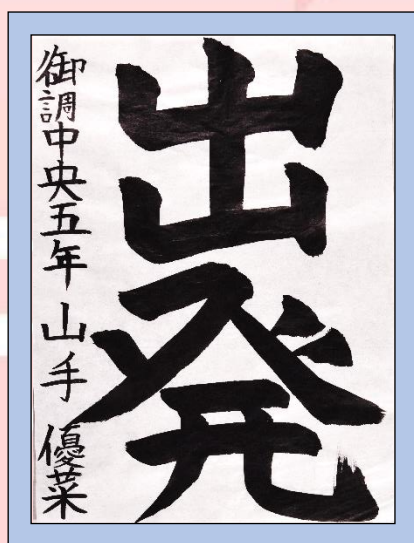 出発
御調中央五年 山手 優菜